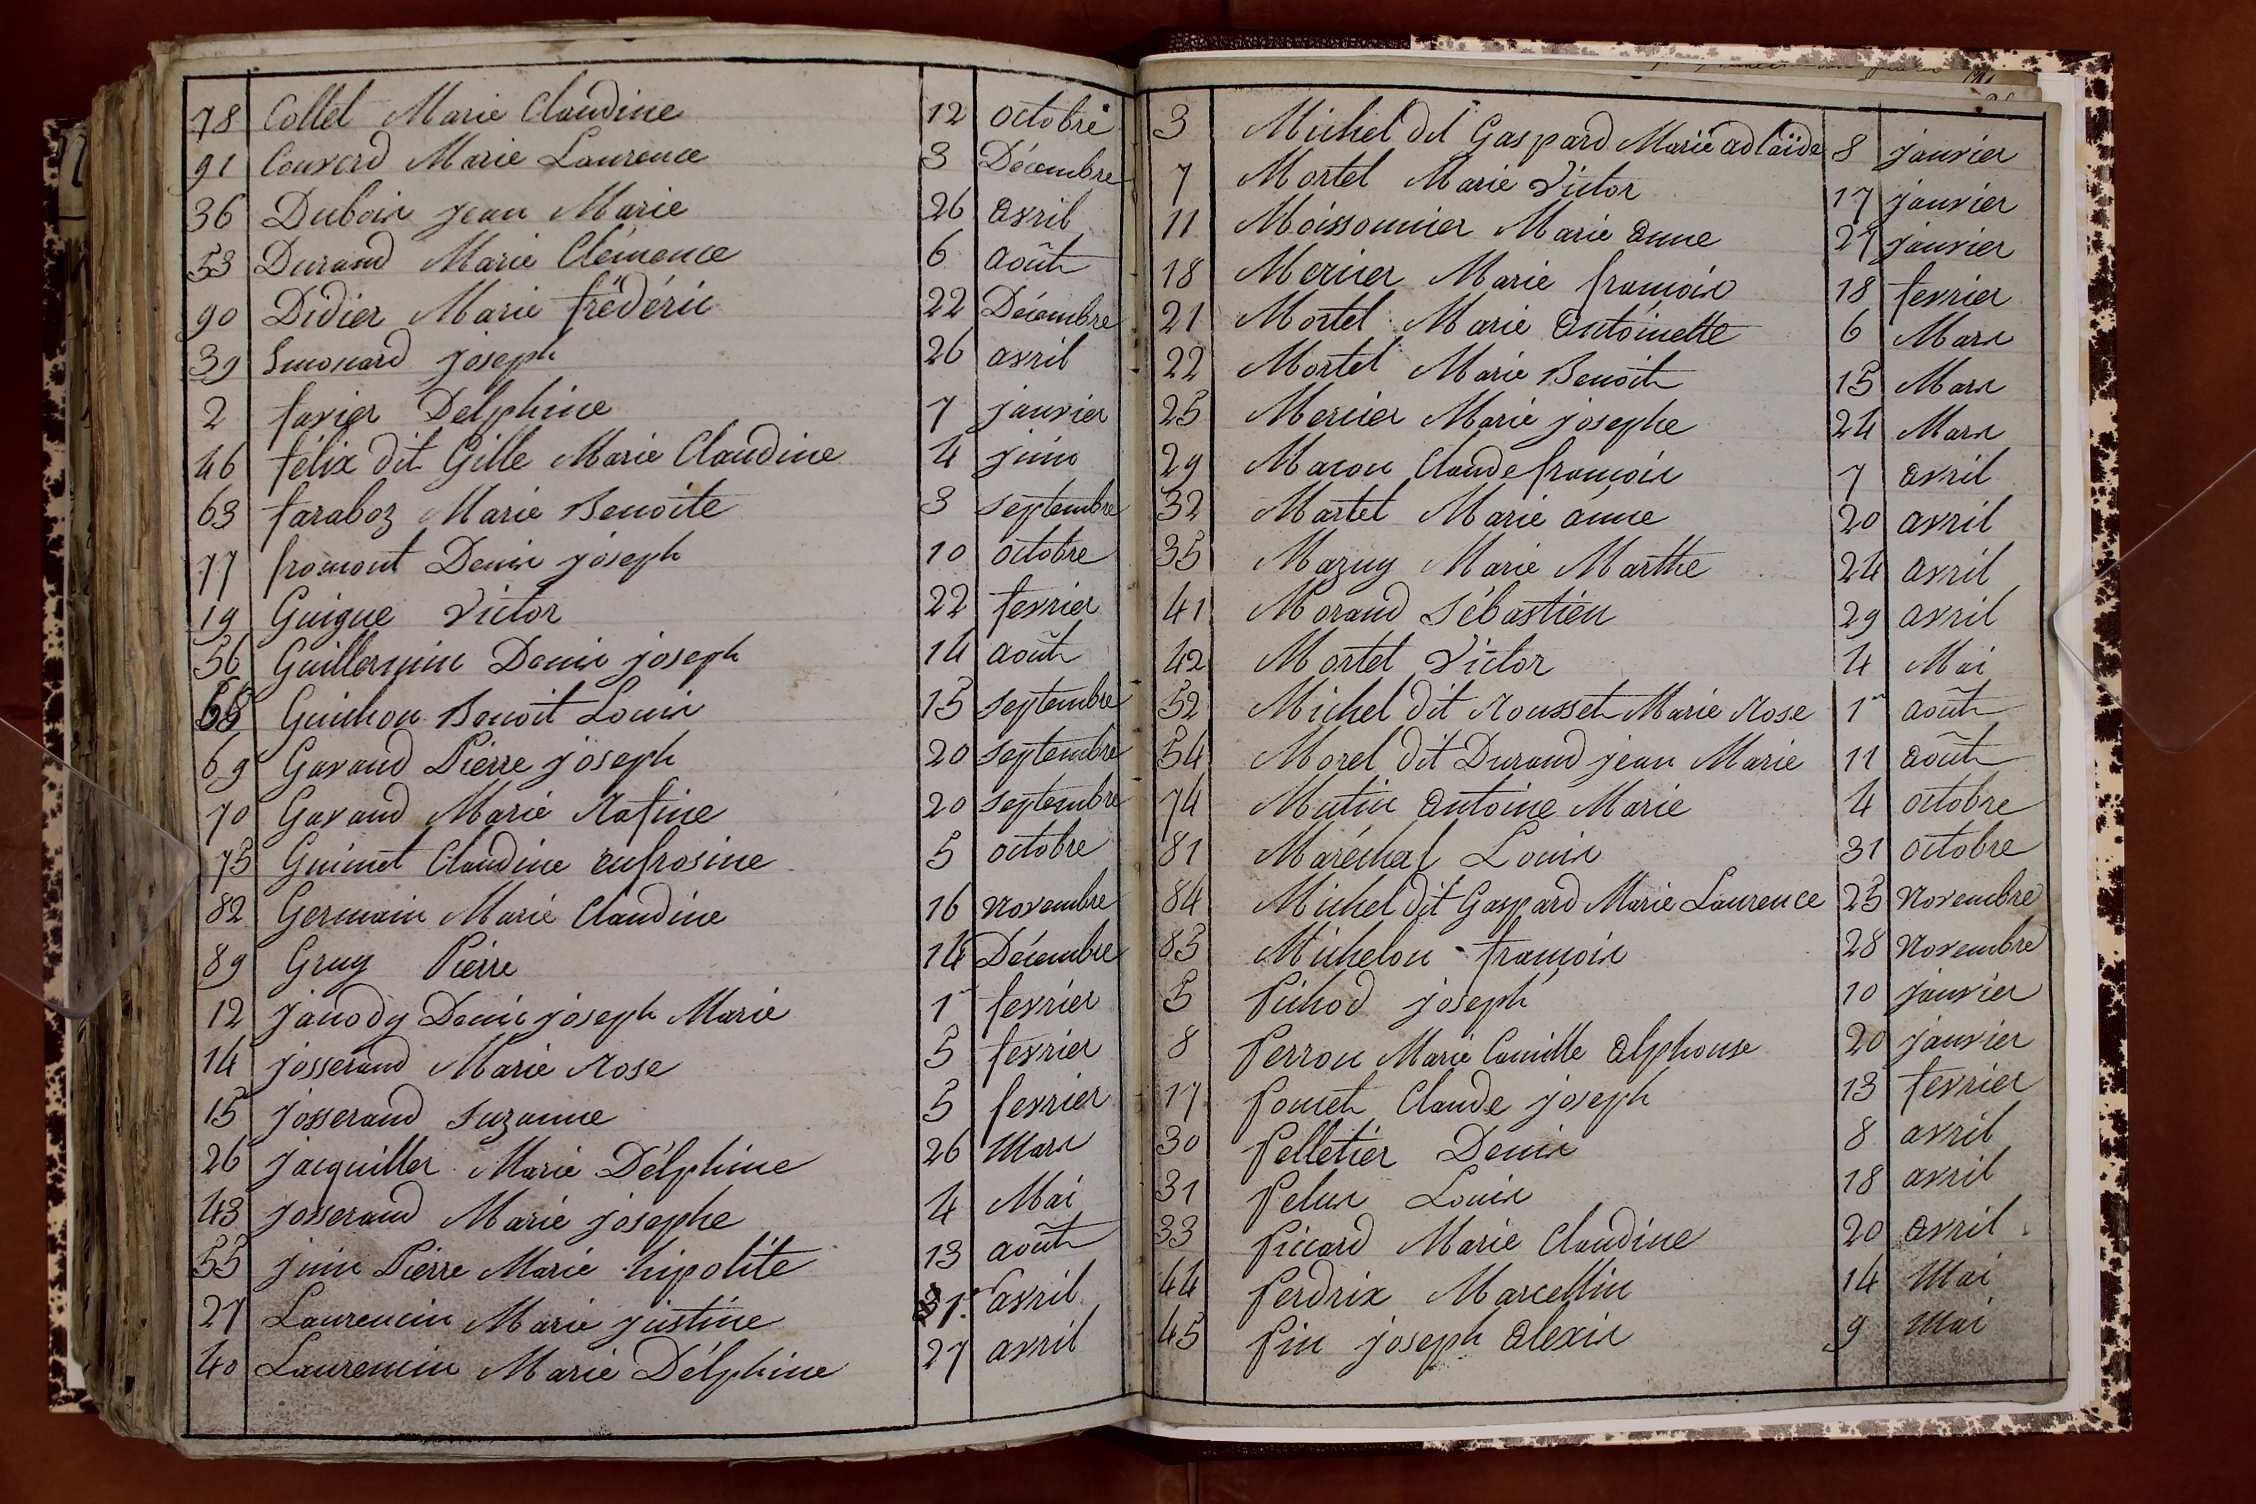 78 Collet Marie Claudine 12 octobre
91 Convert Marie Laurence 3 Décembre
36 Dubois jean Marie 26 avril
53 Durand Marie Clémence 6 août
90 Didier Marie frédéric 22 Décembre
39 joseph 26 avril
2 favier Delphine 7 janvier
46 félix dit Gille Marie Claudine 4 juin
63 faraboz Marie Benoite 3 septembre
77 fromont Denis joseph 10 octobre
19 Guigue Victor 22 fevrier
56 Guillermin Denis joseph 14 août
68 Guichon Benoit Louis 15 septembre
69 Gavand Pierre joseph 20 septembre
70 Gavand Marie Rosine 20 septembre
75 Guinet Claudine eufrosine 5 octobre
82 Germain Marie Claudine 16 Novembre
89 Gruy Pierre 14 Décembre
12 janody Denis joseph Marie 1er fevrier
14 josserand Marie Rose 5 fevrier
15 josserand suzanne 5 fevrier
26 jacquiller Marie Délphine 26 Mars
43 josserand Marie josephe 4 Mai
55 juin Pierre Marie hipolite 13 août
27 Laurencin Marie justine 1er avril
40 Laurencin Marie Délphine 27 avril
3 Michel dit Gaspard Marie adlaïde 8 janvier
7 Mortel Marie Victor 17 janvier
11 Moissonnier Marie anne 27 janvier
18 Mercier Marie françois 18 fevrier
21 Mortel Marie antoinette 6 Mars
22 Mortel Marie Benoit 15 Mars
25 Mercier Marie josephe 24 Mars
29 Macon Claude françois 7 avril
32 Martel Marie anne 20 avril
35 Mazuy Marie Marthe 24 avril
41 Morand sébastien 29 avril
42 Mortel Victor 4 Mai
52 Michel dit Rousset Marie Rose 1er août
54 Morel dit Durand jean Marie 11 août
74 Mutin antoine Marie 4 octobre
81 Maréchal Louis 31 octobre
84 Michel dit Gaspard Marie Laurence 25 Novembre
85 Michelon françois 28 Novembre
5 Pichod joseph 10 janvier
8 Perron Marie Camille alphonse 20 janvier
17 Poncet Claude joseph 13 fevrier
30 Pelletier Denis 8 avril
31 Pelus Louis 18 avril
33 Piccard Marie Claudine 20 avril
44 Perdrix Marcellin 14 Mai
45 Pin joseph alexis 9 Mai